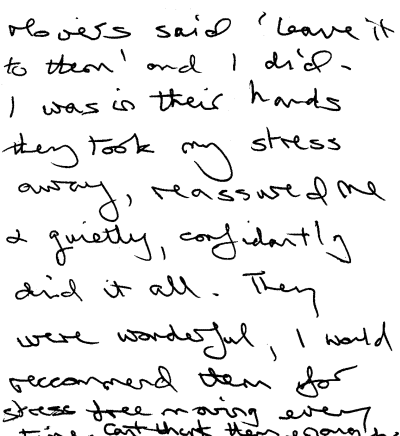 movers said 'leave it
to them' and I did.
I was in their hands
they took my stress
away, reassured me
& quietly, confidantly
did it all. They
were wonderful, I would
reccommend them for
stress free moving every
time. Cant thank them enough